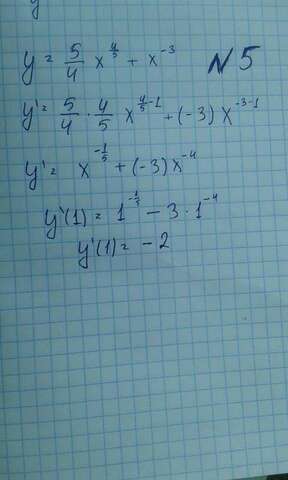 y = 5/4 x^(4/5) + x^(-3) N5
y' = 5/4 · 4/5 x^(4/5-1) + (-3) x^(-3-1)
y' = x^(-1/5) + (-3)x^(-4)
y'(1) = 1^(-1/5) - 3 · 1^(-4)
y'(1) = -2